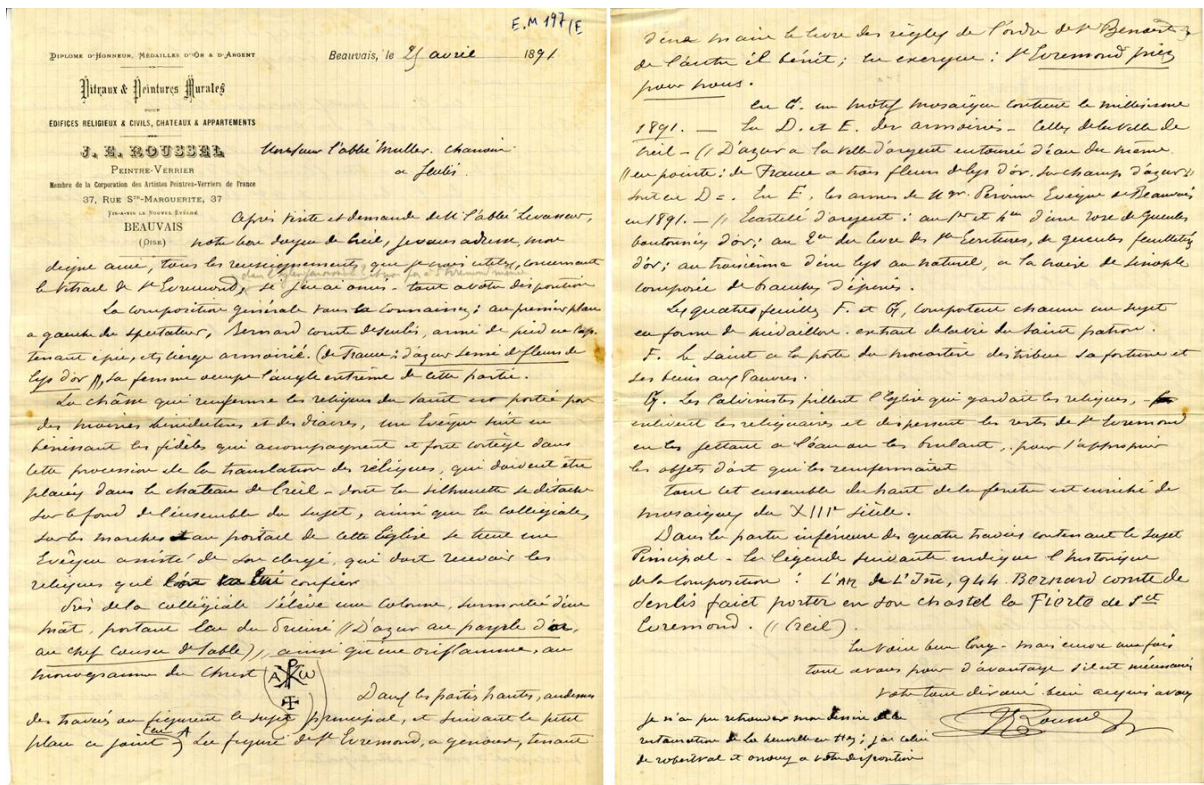 E.M 197/E
DIPLOME D'HONNEUR, MÉDAILLES D'OR & D'ARGENT
Beauvais, le 25 avril 1891
Vitraux & Peintures Murales
POUR
ÉDIFICES RELIGIEUX & CIVILS, CHATEAUX & APPARTEMENTS
J. E. ROUSSEL
PEINTRE-VERRIER
Membre de la Corporation des Artistes Peintres-Verriers de France
37, RUE STE-MARGUERITE, 37
VIS-A-VIS LE NOUVEL ÉVÊCHÉ
BEAUVAIS
(OISE)
Monsieur l'abbé Muller. Chanoine
a Senlis.
Après visite et demande de M. l'abbé Levasseur,
notre bon doyen de Creil, je vous adresse, mon
digne ami, tous les renseignements que je crois utiles, concernant
le vitrail de St Evremond, si j'en ai omis - tout a votre disposition
La composition générale vous la connaissez; au premier plan
a gauche du spectateur, Bernard comte de Senlis, armé de pied en cap
tenant épée, et cierge armoirié. (de France; d'azur semé de fleurs de
lys d'or), sa femme occupe l'angle extrême de cette partie.
La châsse qui renferme les reliques du Saint est portée par
des moines bénédictins et des diacres, un Evêque suit en
bénissant les fidèles qui accompagnent et font cortège dans
cette procession de la translation des reliques, qui doivent être
placées dans le chateau de Creil - dont la silhouette se détache
sur le fond de l'ensemble du sujet, ainsi que la collégiale,
sur les marches au portail de cette Eglise se tient une
Evêque assisté de son clergé, qui doit recevoir les
reliques qui confier
Près de la collégiale s'élève une colonne, surmontée d'un
mât, portant l'écu du Prieuré // D'azur au payple d'or,
au chef cousu de sable), ainsi qu'une oriflamme, au
monogramme du Christ
A ☧ ω
Dans les partis hautes, au dessus
des travées ou figurent le sujet principal, et suivant le petit
plan ci joint A La figure de St Evremond, a genoux, tenant
d'une main le livre des règles de l'ordre de St Benoit;
de l'autre il bénit; en exergue: St Evremond priez
pour nous.
En C. un motif mosaïque contient le millésime
1891. — En D. et E. des armoiries - Celles de la ville de
Creil - // D'azur a la ville d'argent entourée d'eau du même
// en pointe: de France a trois fleurs de lys d'or sur champ d'azur //
soit en D=. En E, les armes de Mgr. Péronne Evêque de Beauvais
en 1891 - // Ecartelé d'argent: au 1er et 4em d'une rose de gueules
boutonnée d'or; au 2em du livre des Stes Ecritures, de gueules feuilleté
d'or; au troisième d'un lys au naturel, a la croix de sinople
composée de branches d'épines.
Les quatres feuilles F. et G, comportent chacune un sujet
en forme de médaillon. extrait de la vie du saint patron.
F. Le saint a la porte du monastère distribue sa fortune et
ses biens aux Pauvres.
G. Les Calvinistes pillent l'Eglise qui gardait les reliques,
enlèvent les reliquaires et dispersent les restes de St Evremond
en les jettant a l'eau ou les brulant, pour s'approprier
les objets d'art qui les renfermaient
Tout cet ensemble du haut de la fenêtre est enrichi de
mosaïques du XIIIe siècle.
Dans la partie inférieure des quatre travées contenant le sujet
Principal - la légende suivante indique l'historique
de la composition: L'AN de L'Inc, 944 Bernard comte de
Senlis faict porter en son chastel la Fierte de Sct
Evremond. (Creil).
En voici bien long - mais encore une fois
tout a vous pour d'avantage s'il est nécessaire
Votre tout dévoué bien acquis a vous
Roussel
Je n'ai pu retrouver mon dessin de la
restauration de la neuville en Hez; j'ai celui
de roberval et a votre disposition